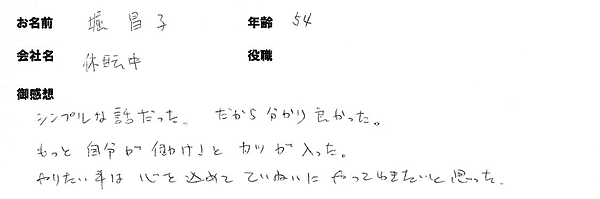 お名前 堀 昌子 年齢 54
会社名 休転中 役職
御感想
シンプルな話だった。 だから分かり良かった。
もっと自分が働けきと カツが入った。
やりたい事は心を込めてていねいにやっておきたいと思った。